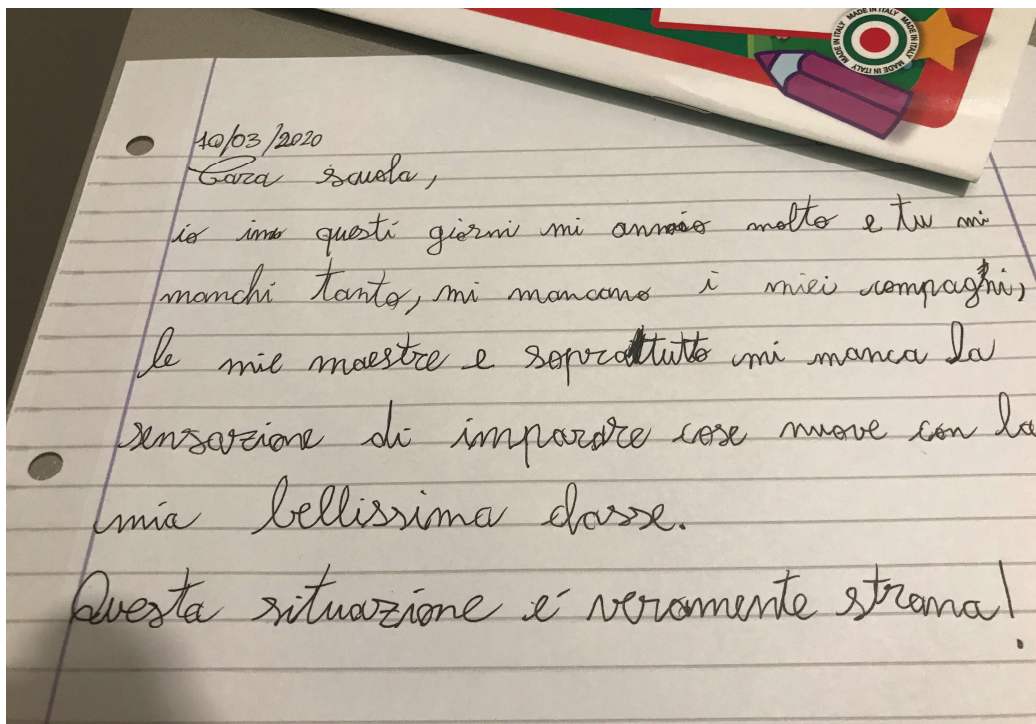 MADE IN ITALY MADE IN ITALY MADE IN ITALY MADE IN ITALY
10/03/2020
Cara scuola,
io in questi giorni mi annoio molto e tu mi
manchi tanto, mi mancano i miei compagni,
le mie maestre e soprattutto mi manca la
sensazione di imparare cose nuove con la
mia bellissima classe.
Questa situazione é veramente strana!